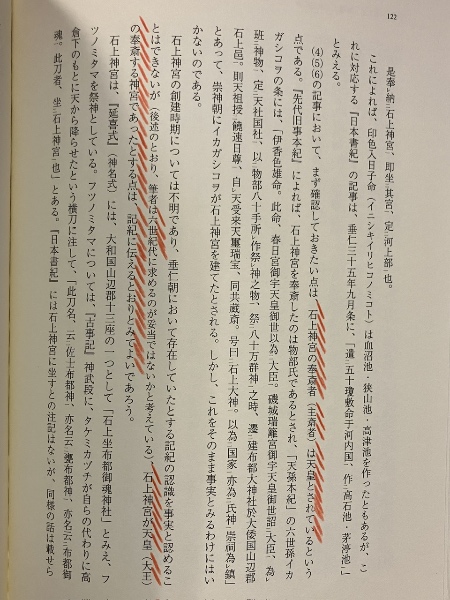 122
是奉レ納二石上神宮一、即坐二其宮一、定二河上部一也。
これによれば、印色入日子命（イニシキイリヒコノミコト）は血沼池・狭山池・高津池を作ったともあるが、こ
れに対応する『日本書紀』の記事は、垂仁三十五年九月条に、「遣二五十瓊敷命于河内国一、作二高石池・茅渟池一」
とみえる。
(4)(5)(6)の記事において、まず確認しておきたい点は、石上神宮の奉斎者（主斎者）は天皇とされているという
点である。『先代旧事本紀』によれば、石上神宮を奉斎したのは物部氏であるとされ、「天孫本紀」の六世孫イカ
ガシコヲの条には、「伊香色雄命。此命、春日宮御宇天皇御世以為二大臣一。磯城瑞籬宮御宇天皇御世詔二大臣一、為レ
班二神物一、定二天社国社一、以二物部八十手所レ作祭レ神之物一、祭二八十万群神一之時、遷二建布都大神社於大倭国山辺郡
石上邑一。則天祖授二饒速日尊一、自レ天受来天璽瑞宝、同共蔵斎。号曰二石上大神一。以為二国家一亦為二氏神一、崇祠為レ鎮」
とあって、崇神朝にイカガシコヲが石上神宮を建てたとされる。しかし、これをそのまま事実とみるわけにはい
かないのである。
石上神宮の創建時期については不明であり、垂仁朝において存在していたとする記紀の認識を事実と認めるこ
とはできないが（後述のとおり、筆者は六世紀代に求めるのが妥当ではないかと考えている）、石上神宮が天皇（大王）
の奉斎する神宮であったとする点は、記紀に伝えるとおりとみてよいであろう。
石上神宮は、『延喜式』（神名式）には、大和国山辺郡十三座の一つとして「石上坐布都御魂神社」とみえ、フ
ツノミタマを祭神としている。フツノミタマについては、『古事記』神武段に、タケミカヅチが自らの代わりに高
倉下のもとに天から降らせたという横刀に注して、「此刀名、云二佐士布都神一、亦名云二甕布都神一、亦名云二布都御
魂一。此刀者、坐二石上神宮一也」とある。『日本書紀』には石上神宮に坐すとの注記はないが、同様の話は載せら